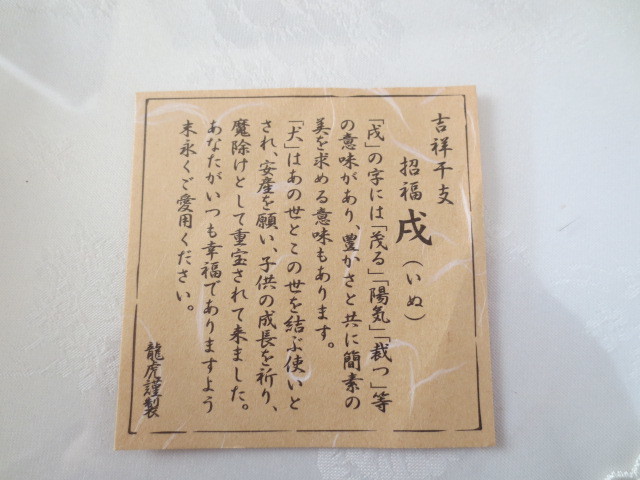 吉祥干支
招福 戌（いぬ）
「戌」の字には「茂る」「陽気」「裁つ」等
の意味があり、豊かさと共に簡素の
美を求める意味もあります。
「犬」はあの世とこの世を結ぶ使いと
され、安産を願い、子供の成長を祈り、
魔除けとして重宝されて来ました。
あなたがいつも幸福でありますよう
末永くご愛用ください。
龍虎謹製